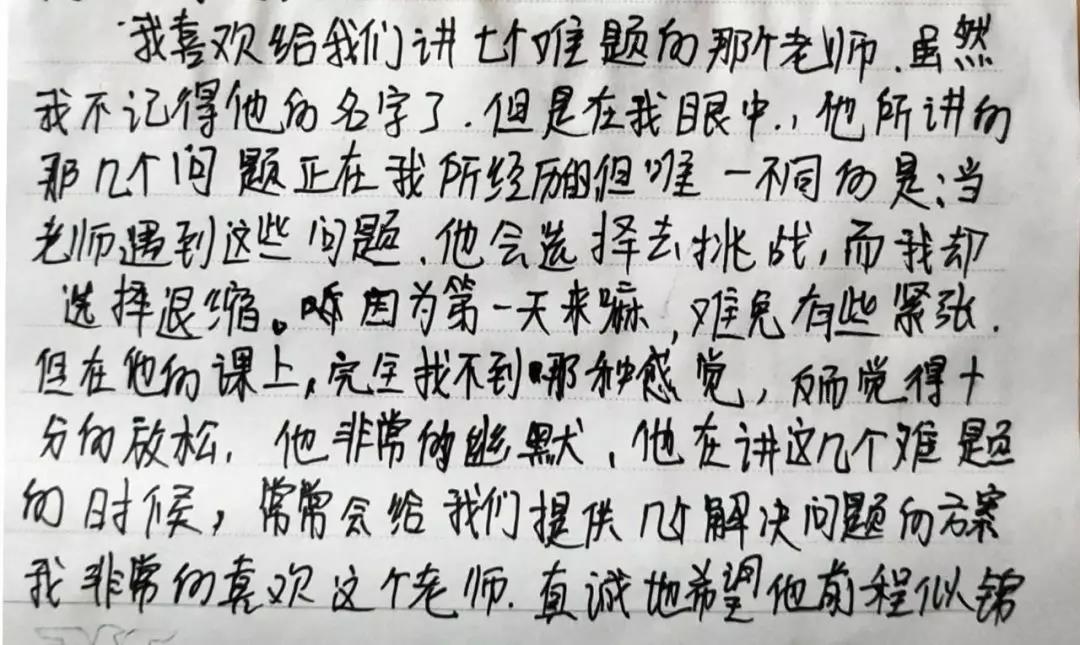 我喜欢给我们讲七个难题的那个老师.虽然
我不记得他的名字了.但是在我眼中.,他所讲的
那几个问题正在我所经历的但唯一不同的是:当
老师遇到这些问题.他会选择去挑战,而我却
选择退缩。因为第一天来嘛,难免有些紧张.
但在他的课上,完全找不到那种感觉,反而觉得十
分的放松.他非常的幽默.他在讲这几个难题
的时候,常常会给我们提供几个解决问题的方案
我非常的喜欢这个老师.真诚地希望他前程似锦